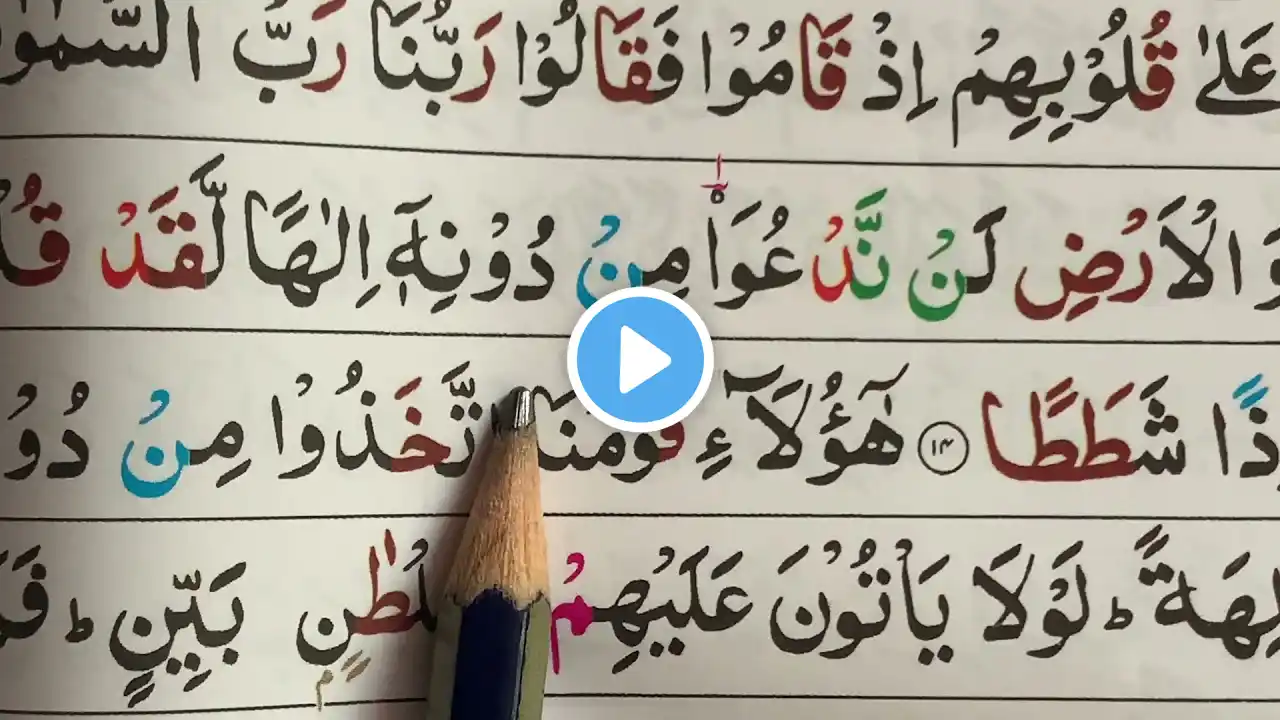 عَلٰى قُلُوْبِهِمْ اِذْ قَامُوْا فَقَالُوْا رَبُّنَا رَبُّ السَّمٰوٰ
وَ الْاَرْضِ لَنْ نَّدْعُوَا۟ مِنْ دُوْنِهٖۤ اِلٰهًا لَّقَدْ قُ
ذًا شَطَطًا ۱۴ هٰۤؤُلَآءِ قَوْمُنَا تَّخَذُوْا مِنْ دُوْ
لِهَةً ؕ لَوْلَا يَاْتُوْنَ عَلَيْهِمْ لْطٰنٍ بَيِّنٍ ؕ فَمَ